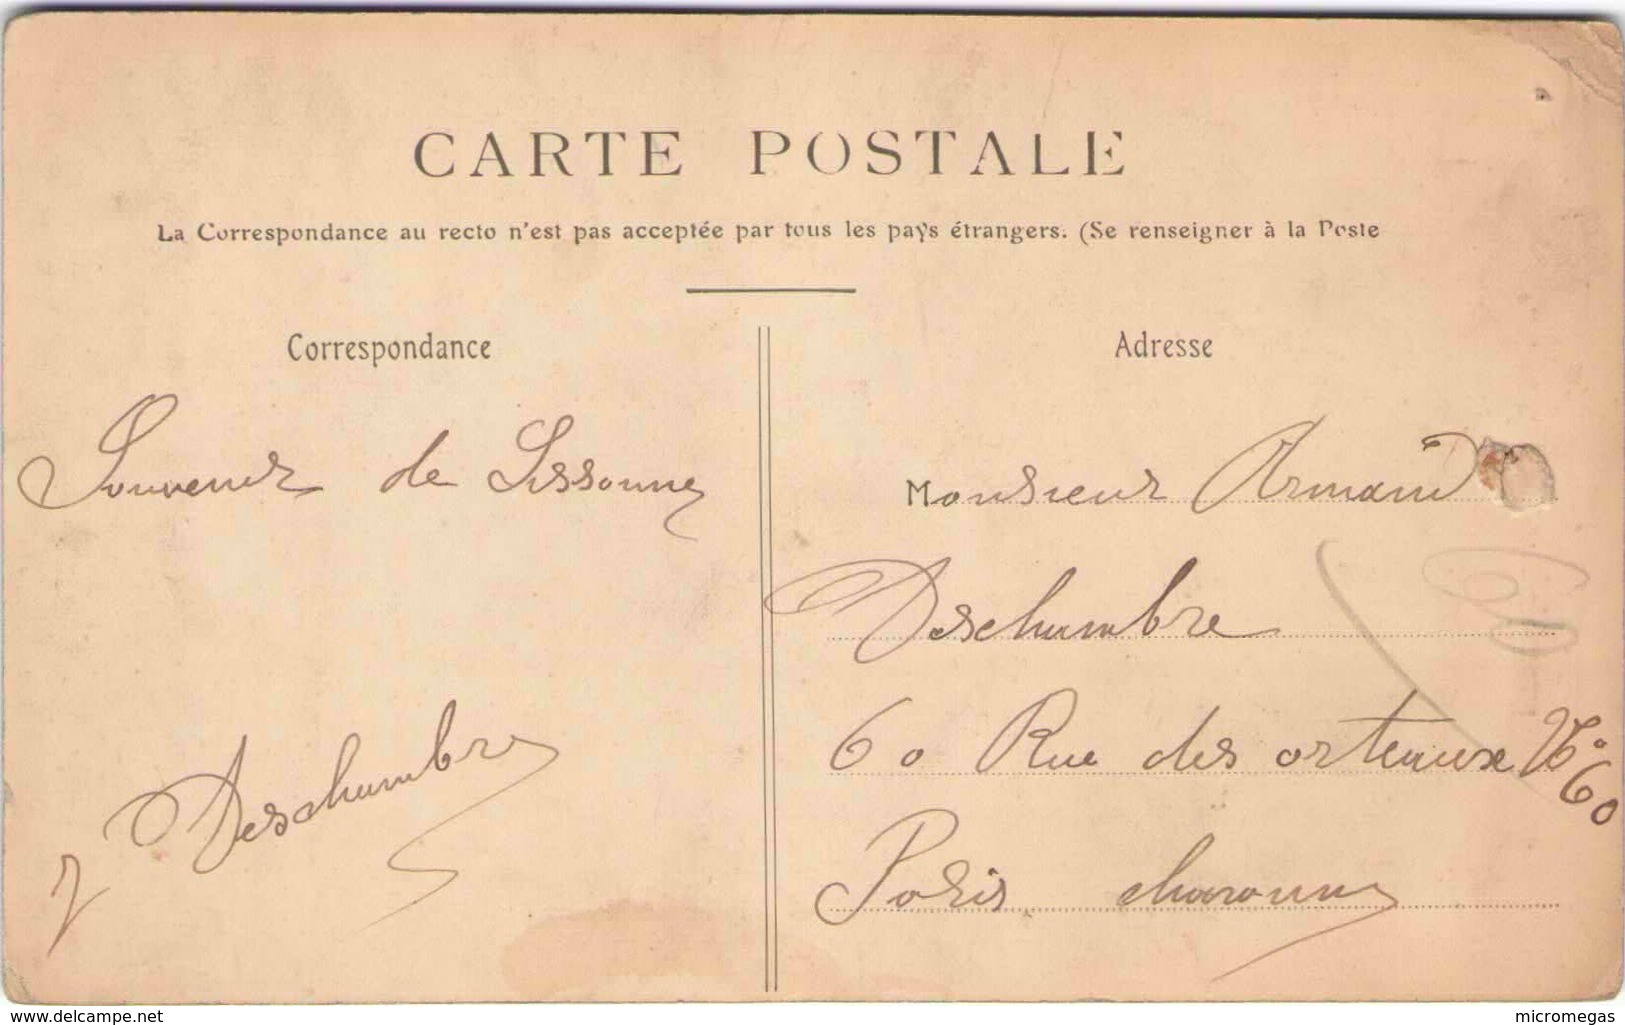 CARTE POSTALE
La Correspondance au recto n'est pas acceptée par tous les pays étrangers. (Se renseigner à la Poste
Correspondance
Souvenir de Sissonne
J Deschambre
Adresse
Monsieur Armand
Deschambre
60 Rue des orteaux No 60
Paris charonne
www.delcampe.net
micromegas